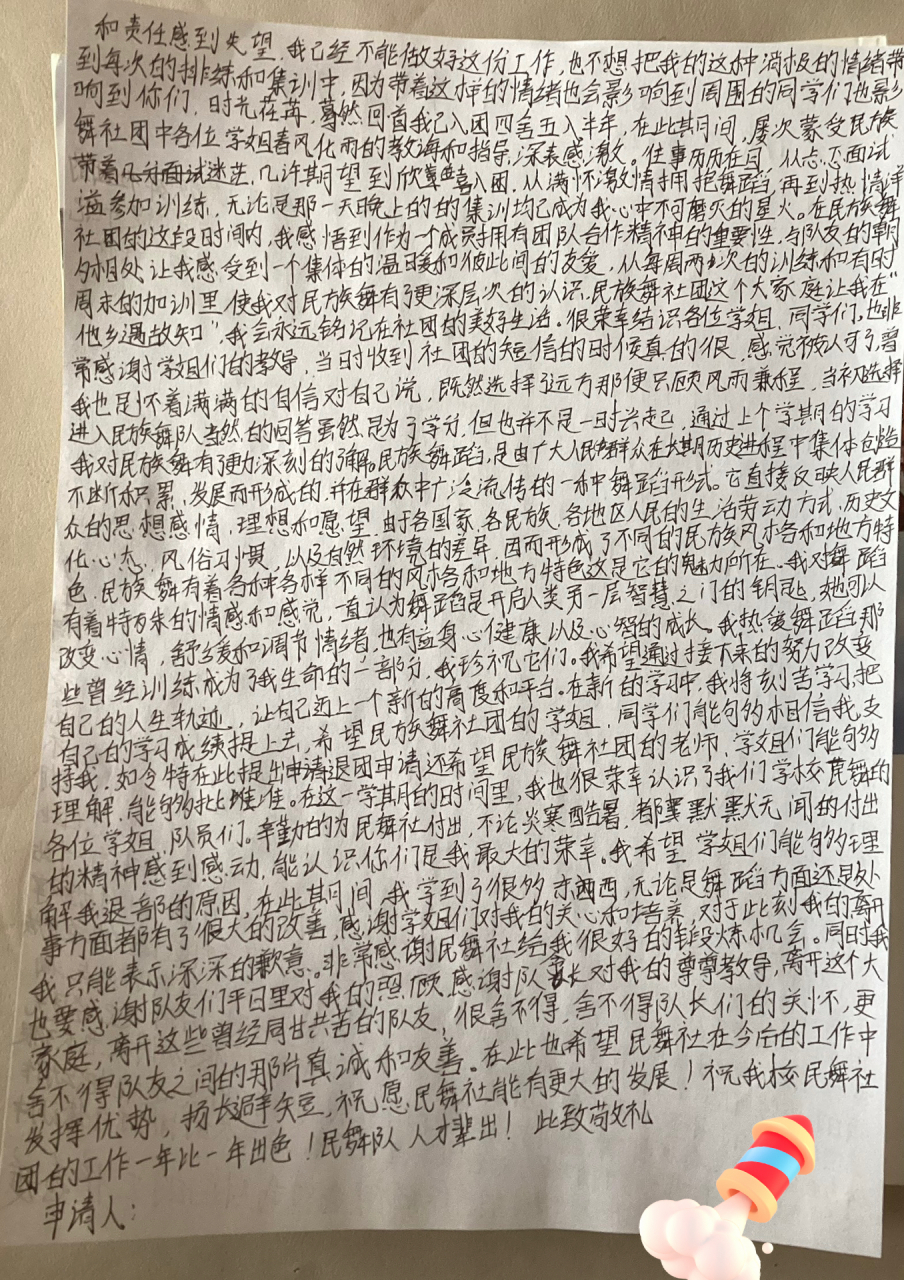 和责任感到失望,我已经不能做好这份工作,也不想把我的这种消极的情绪带
到每次的排练和集训中,因为带着这样的情绪也会影响到周围的同学们也影
响到你们,时光荏苒,蓦然回首我已入团四舍五入半年,在此其间,屡次蒙受民族
舞社团中各位学姐春风化雨的教诲和指导,深表感激。往事历历在目,从忐忑面试
带着几分面试迷茫,几许期望到欣喜入团,从满怀激情拥抱舞蹈,再到热情洋
溢参加训练,无论是那一天晚上的的集训均已成为我心中不可磨灭的星火。在民族舞
社团的这段时间内,我感悟到作为一个成员拥有团队合作精神的重要性,与队友的朝
夕相处让我感受到一个集体的温暖和彼此间的友爱,从每周两次的训练和有时
周末的加训里使我对民族舞有了更深层次的认识,民族舞社团这个大家庭让我在“
他乡遇故知”,我会永远铭记在社团的美好生活。很荣幸结识各位学姐,同学们。也非
常感谢学姐们的教导,当时收到社团的短信的时候真的很,感觉被认可了,曾
我也是怀着满满的自信对自己说,既然选择了远方那便只顾风雨兼程,当初选择
进入民族舞队当然的回答虽然是为了学分,但也并不是一时兴起,通过上个学期的学习
我对民族舞有了更加深刻的了解。民族舞蹈,是由广大人民群众在长期历史进程中集体创造
不断积累,发展而形成的,并在群众中广泛流传的一种舞蹈形式。它直接反映人民群
众的思想感情,理想和愿望,由于各国家,各民族,各地区人民的生活劳动方式,历史文
化心态,风俗习惯,以及自然环境的差异,因而形成了不同的民族风格和地方特
色,民族舞有着各种各样不同的风格和地方特色这是它的魅力所在。我对舞蹈
有着特殊的情感和感觉,一直认为舞蹈是开启人类另一层智慧之门的钥匙,她可以
改变心情,舒缓和调节情绪,也有益身心健康以及心智的成长。我热爱舞蹈那
些曾经训练成为了我生命的一部分,我珍视它们。我希望通过接下来的努力改变
自己的人生轨迹,让自己迈上一个新的高度和平台。在新的学习中,我将刻苦学习,把
自己的学习成绩提上去,希望民族舞社团的学姐,同学们能够相信我,支
持我,如今特在此提出申请退团申请还希望民族舞社团的老师,学姐们能够
理解,能够批准。在这一学期的时间里,我也很荣幸认识了我们学校民舞的
各位学姐,队员们。辛勤的为民舞社付出,不论炎寒酷暑,都默默无闻的付出
的精神感到感动,能认识你们是我最大的荣幸。我希望学姐们能够理
解我退部的原因,在此其间,我学到了很多东西,无论是舞蹈方面还是处
事方面都有了很大的改善,感谢学姐们对我的关心和培养,对于此刻我的离开
我只能表示深深的歉意。非常感谢民舞社给我很好的锻炼机会。同时我
也要感谢队友们平日里对我的照顾,感谢队长对我的尊尊教导,离开这个大
家庭,离开这些曾经同甘共苦的队友,很舍不得,舍不得队长们的关怀,更
舍不得队友之间的那片真诚和友善。在此也希望民舞社在今后的工作中
发挥优势,扬长避短,祝愿民舞社能有更大的发展!祝我校民舞社
团的工作一年比一年出色!民舞队人才辈出!此致敬礼
申请人: